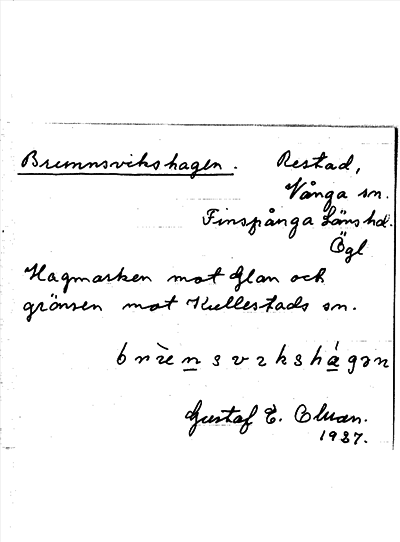 Bremnsvikshagen. Restad,
Vånga sn.
Finspånga Läns hd.
Ögl
Hagmarken mot Glan och
gränsen mot Kullestads sn.
Gustaf E.
1937.